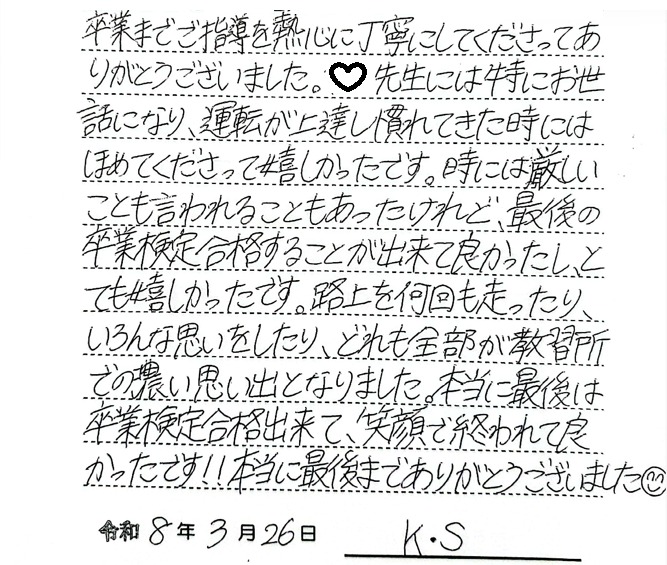 卒業までご指導を熱心に丁寧にしてくださってあ
りがとうございました。♡先生には特にお世
話になり、運転が上達し慣れてきた時には
ほめてくださって嬉しかったです。時には厳しい
ことも言われることもあったけれど、最後の
卒業検定合格することが出来て良かったし、と
ても嬉しかったです。路上を何回も走ったり、
いろんな思いをしたり、どれも全部が教習所
での濃い思い出となりました。本当に最後は
卒業検定合格出来て、笑顔で終われて良
かったです!!本当に最後までありがとうございました☺
令和8年3月26日 K・S